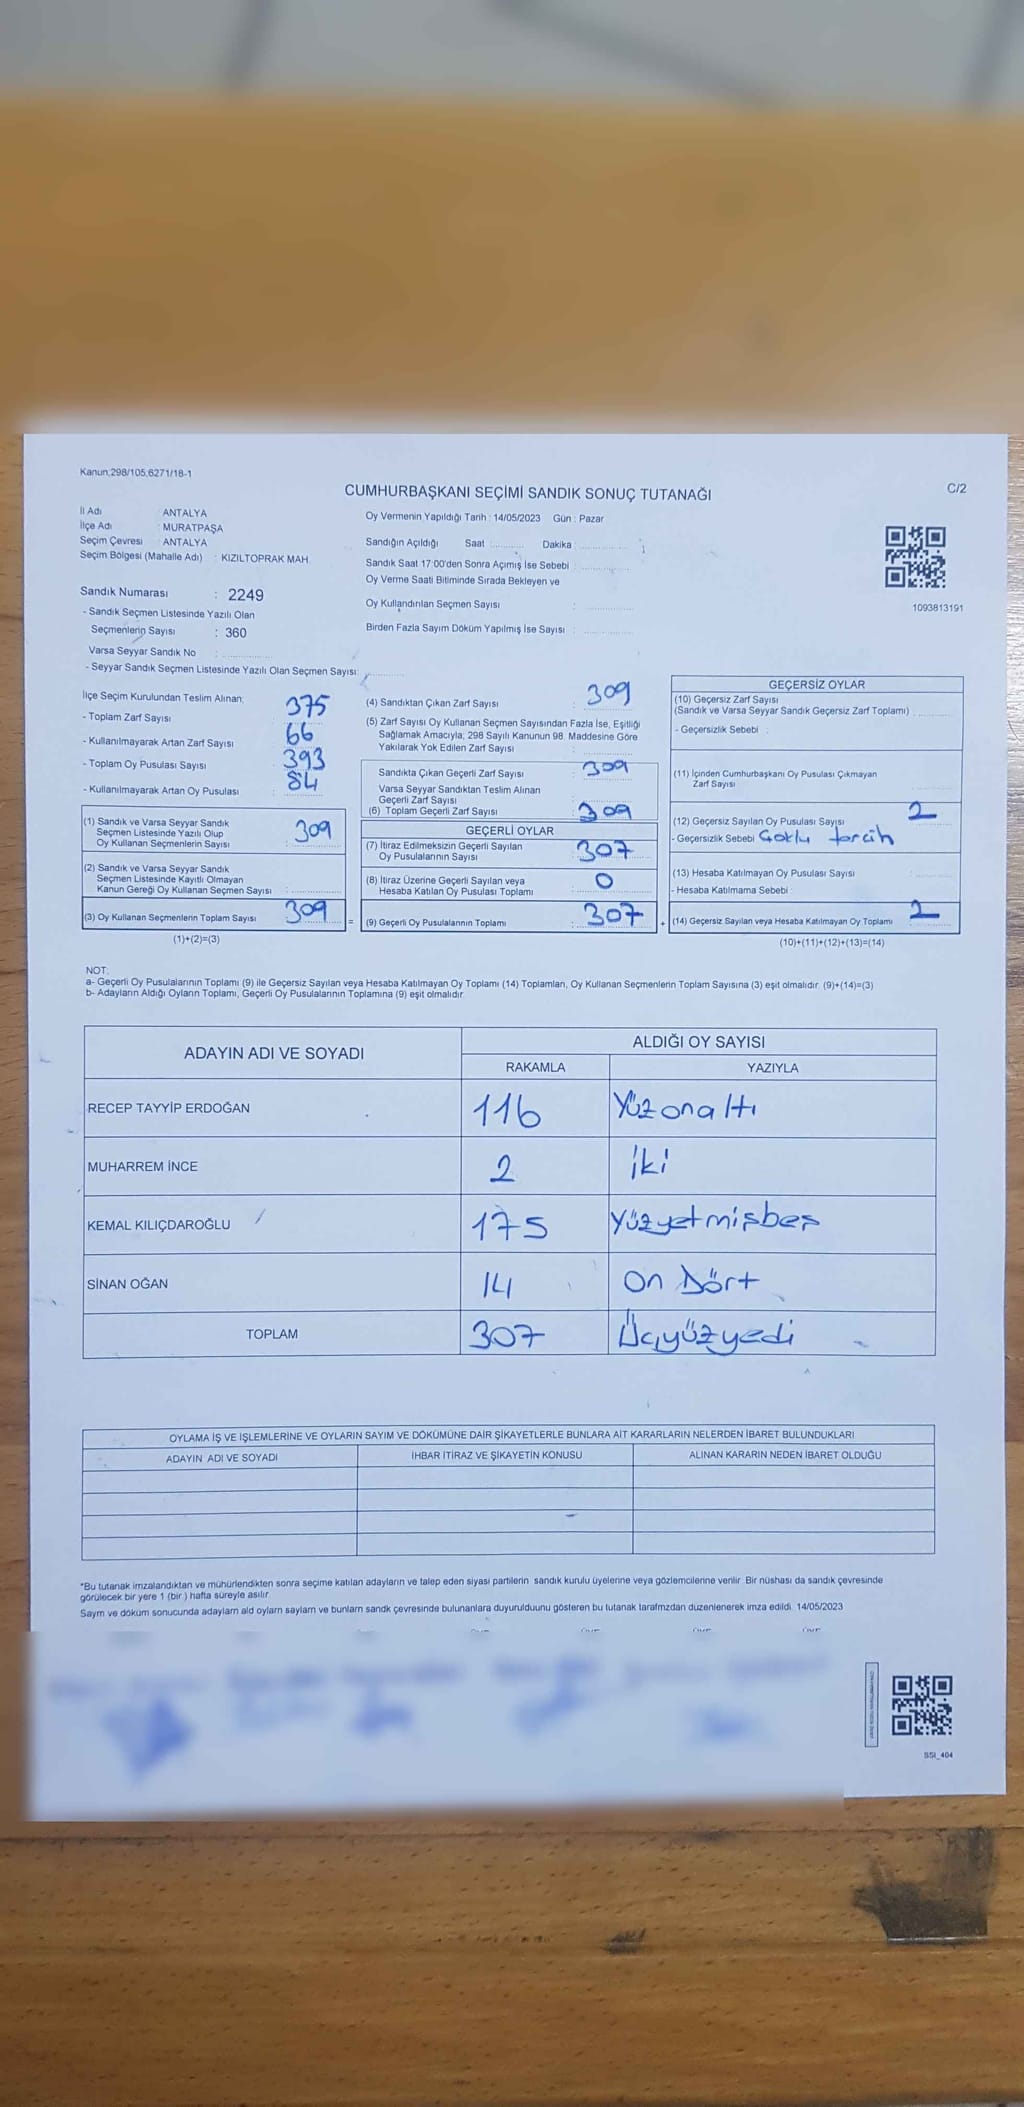 Kanun;298/105,6271/18-1
C/2
CUMHURBAŞKANI SEÇİMİ SANDIK SONUÇ TUTANAĞI
İl Adı ANTALYA
İlçe Adı MURATPAŞA
Seçim Çevresi ANTALYA
Seçim Bölgesi (Mahalle Adı) : KIZILTOPRAK MAH.
Oy Vermenin Yapıldığı Tarih : 14/05/2023 Gün : Pazar
Sandığın Açıldığı Saat : Dakika :
Sandık Saat 17:00'den Sonra Açımış İse Sebebi :
Oy Verme Saati Bitiminde Sırada Bekleyen ve
Oy Kullandırılan Seçmen Sayısı :
Birden Fazla Sayım Döküm Yapılmış İse Sayısı :
1093813191
Sandık Numarası : 2249
- Sandık Seçmen Listesinde Yazılı Olan
Seçmenlerin Sayısı : 360
Varsa Seyyar Sandık No :
- Seyyar Sandık Seçmen Listesinde Yazılı Olan Seçmen Sayısı:
İlçe Seçim Kurulundan Teslim Alınan;
- Toplam Zarf Sayısı 375
- Kullanılmayarak Artan Zarf Sayısı 66
- Toplam Oy Pusulası Sayısı 393
- Kullanılmayarak Artan Oy Pusulası 84
(1) Sandık ve Varsa Seyyar Sandık
Seçmen Listesinde Yazılı Olup
Oy Kullanan Seçmenlerin Sayısı : 309
(2) Sandık ve Varsa Seyyar Sandık
Seçmen Listesinde Kayıtlı Olmayan
Kanun Gereği Oy Kullanan Seçmen Sayısı :
(3) Oy Kullanan Seçmenlerin Toplam Sayısı 309 =
(1)+(2)=(3)
(4) Sandıktan Çıkan Zarf Sayısı : 309
(5) Zarf Sayısı Oy Kullanan Seçmen Sayısından Fazla İse, Eşitliği
Sağlamak Amacıyla; 298 Sayılı Kanunun 98. Maddesine Göre
Yakılarak Yok Edilen Zarf Sayısı :
Sandıkta Çıkan Geçerli Zarf Sayısı : 309
Varsa Seyyar Sandıktan Teslim Alınan
Geçerli Zarf Sayısı
(6) Toplam Geçerli Zarf Sayısı : 309
GEÇERLİ OYLAR
(7) İtiraz Edilmeksizin Geçerli Sayılan
Oy Pusulalarının Sayısı : 307
(8) İtiraz Üzerine Geçerli Sayılan veya
Hesaba Katılan Oy Pusulası Toplamı : 0
(9) Geçerli Oy Pusulalarının Toplamı : 307 +
GEÇERSİZ OYLAR
(10) Geçersiz Zarf Sayısı
(Sandık ve Varsa Seyyar Sandık Geçersiz Zarf Toplamı)
- Geçersizlik Sebebi :
(11) İçinden Cumhurbaşkanı Oy Pusulası Çıkmayan
Zarf Sayısı
(12) Geçersiz Sayılan Oy Pusulası Sayısı 2
- Geçersizlik Sebebi Çoklu tercih
(13) Hesaba Katılmayan Oy Pusulası Sayısı
- Hesaba Katılmama Sebebi :
(14) Geçersiz Sayılan veya Hesaba Katılmayan Oy Toplamı : 2
(10)+(11)+(12)+(13)=(14)
NOT:
a- Geçerli Oy Pusulalarının Toplamı (9) ile Geçersiz Sayılan veya Hesaba Katılmayan Oy Toplamı (14) Toplamları, Oy Kullanan Seçmenlerin Toplam Sayısına (3) eşit olmalıdır. (9)+(14)=(3)
b- Adayların Aldığı Oyların Toplamı, Geçerli Oy Pusulalarının Toplamına (9) eşit olmalıdır.
ADAYIN ADI VE SOYADI ALDIĞI OY SAYISI
RAKAMLA YAZIYLA
RECEP TAYYİP ERDOĞAN 116 Yüzonaltı
MUHARREM İNCE 2 iki
KEMAL KILIÇDAROĞLU 175 Yüzyetmişbeş
SİNAN OĞAN 14 On Dört
TOPLAM 307 Üçyüzyedi
OYLAMA İŞ VE İŞLEMLERİNE VE OYLARIN SAYIM VE DÖKÜMÜNE DAİR ŞİKAYETLERLE BUNLARA AİT KARARLARIN NELERDEN İBARET BULUNDUKLARI
ADAYIN ADI VE SOYADI İHBAR İTİRAZ VE ŞİKAYETİN KONUSU ALINAN KARARIN NEDEN İBARET OLDUĞU
*Bu tutanak imzalandıktan ve mühürlendikten sonra seçime katılan adayların ve talep eden siyasi partilerin sandık kurulu üyelerine veya gözlemcilerine verilir. Bir nüshası da sandık çevresinde
görülecek bir yere 1 (bir ) hafta süreyle asılır.
Sayım ve döküm sonucunda adayların ald oyların saylam ve bunlarn sandk çevresinde bulunanlara duyurulduunu gösteren bu tutanak tarafmzdan düzenlenerek imza edildi. 14/05/2023
SSI_404